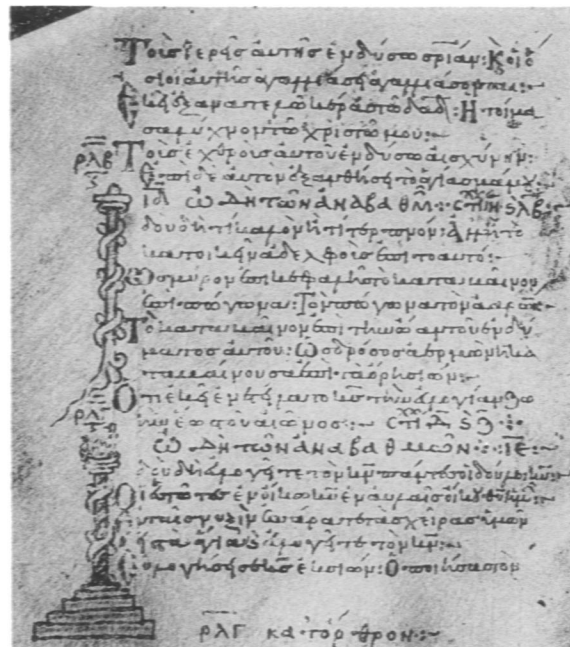 Τοὺς ἱερεῖς αὐτῆς ἐνδύσω σρίαν: Κ οἱ ὅ
σιοι αὐτῆς ἀγαλλιάσει ἀγαλλιάσονται:~
Ἐκεῖ ἐξανατελῶ κέρας τῶ δαδ: Ἡτοίμα
σα λύχνον τῶ χριστῶ μου:~
ρλβ Τοὺς ἐχθροὺς αὐτοῦ ἐνδύσω αἰσχύνην:
Ἐπὶ δὲ αὐτὸν ἐξανθήσει τὸ ἁγίασμά μου
ΙΔ ὨΔῊ ΤΩ͂Ν ἈΝΑΒΑΘΜ:
Ἰδοὺ δὴ τί καλὸν ἢ τί τερπνὸν: Ἀλλ' ἢ τὸ
κατοικεῖν ἀδελφοὺς ἐπιτοαυτό:
Ὡς μύρον ἐπὶ κεφαλῆς τὸ καταβαῖνον
ἐπὶ πώγωνα: Τὸν πώγωνα τὸν ἀαρών
Τὸ καταβαῖνον ἐπὶ τὴν ὤαν τοῦ ἐνδύ
ματος αὐτοῦ: Ὡς δρόσος ἀερμὼν ἡ κα
ταβαίνουσα ἐπὶ τὰ ὄρη σιών:
Ὅτι ἐκεῖ ἐνετείλατο κς τὴν εὐλογίαν ζω
ὴν ἕως τοῦ αἰῶνος:~
ὨΔῊ ΤΩ͂Ν ἈΝΑΒΑΘΜΩ͂Ν: ΙΕ:~
Ἰδοὺ δὴ εὐλογεῖτε τὸν κν πάντες οἱ δοῦλοι κυ:
Οἱ ἑστῶτες ἐν οἴκω κυ ἐν αὐλαῖς οἴκου θυ ἡμῶν:
Ἐν ταῖς νυξὶν ἐπάρατε τὰς χεῖρας ὑμῶν
εἰς τὰ ἅγια κ εὐλογεῖτε τὸν κν:~
Εὐλογήσει σε κς ἐκ σιών: Ὁ ποιήσας τὸν
ρλγ κατ ὄρθρον:~